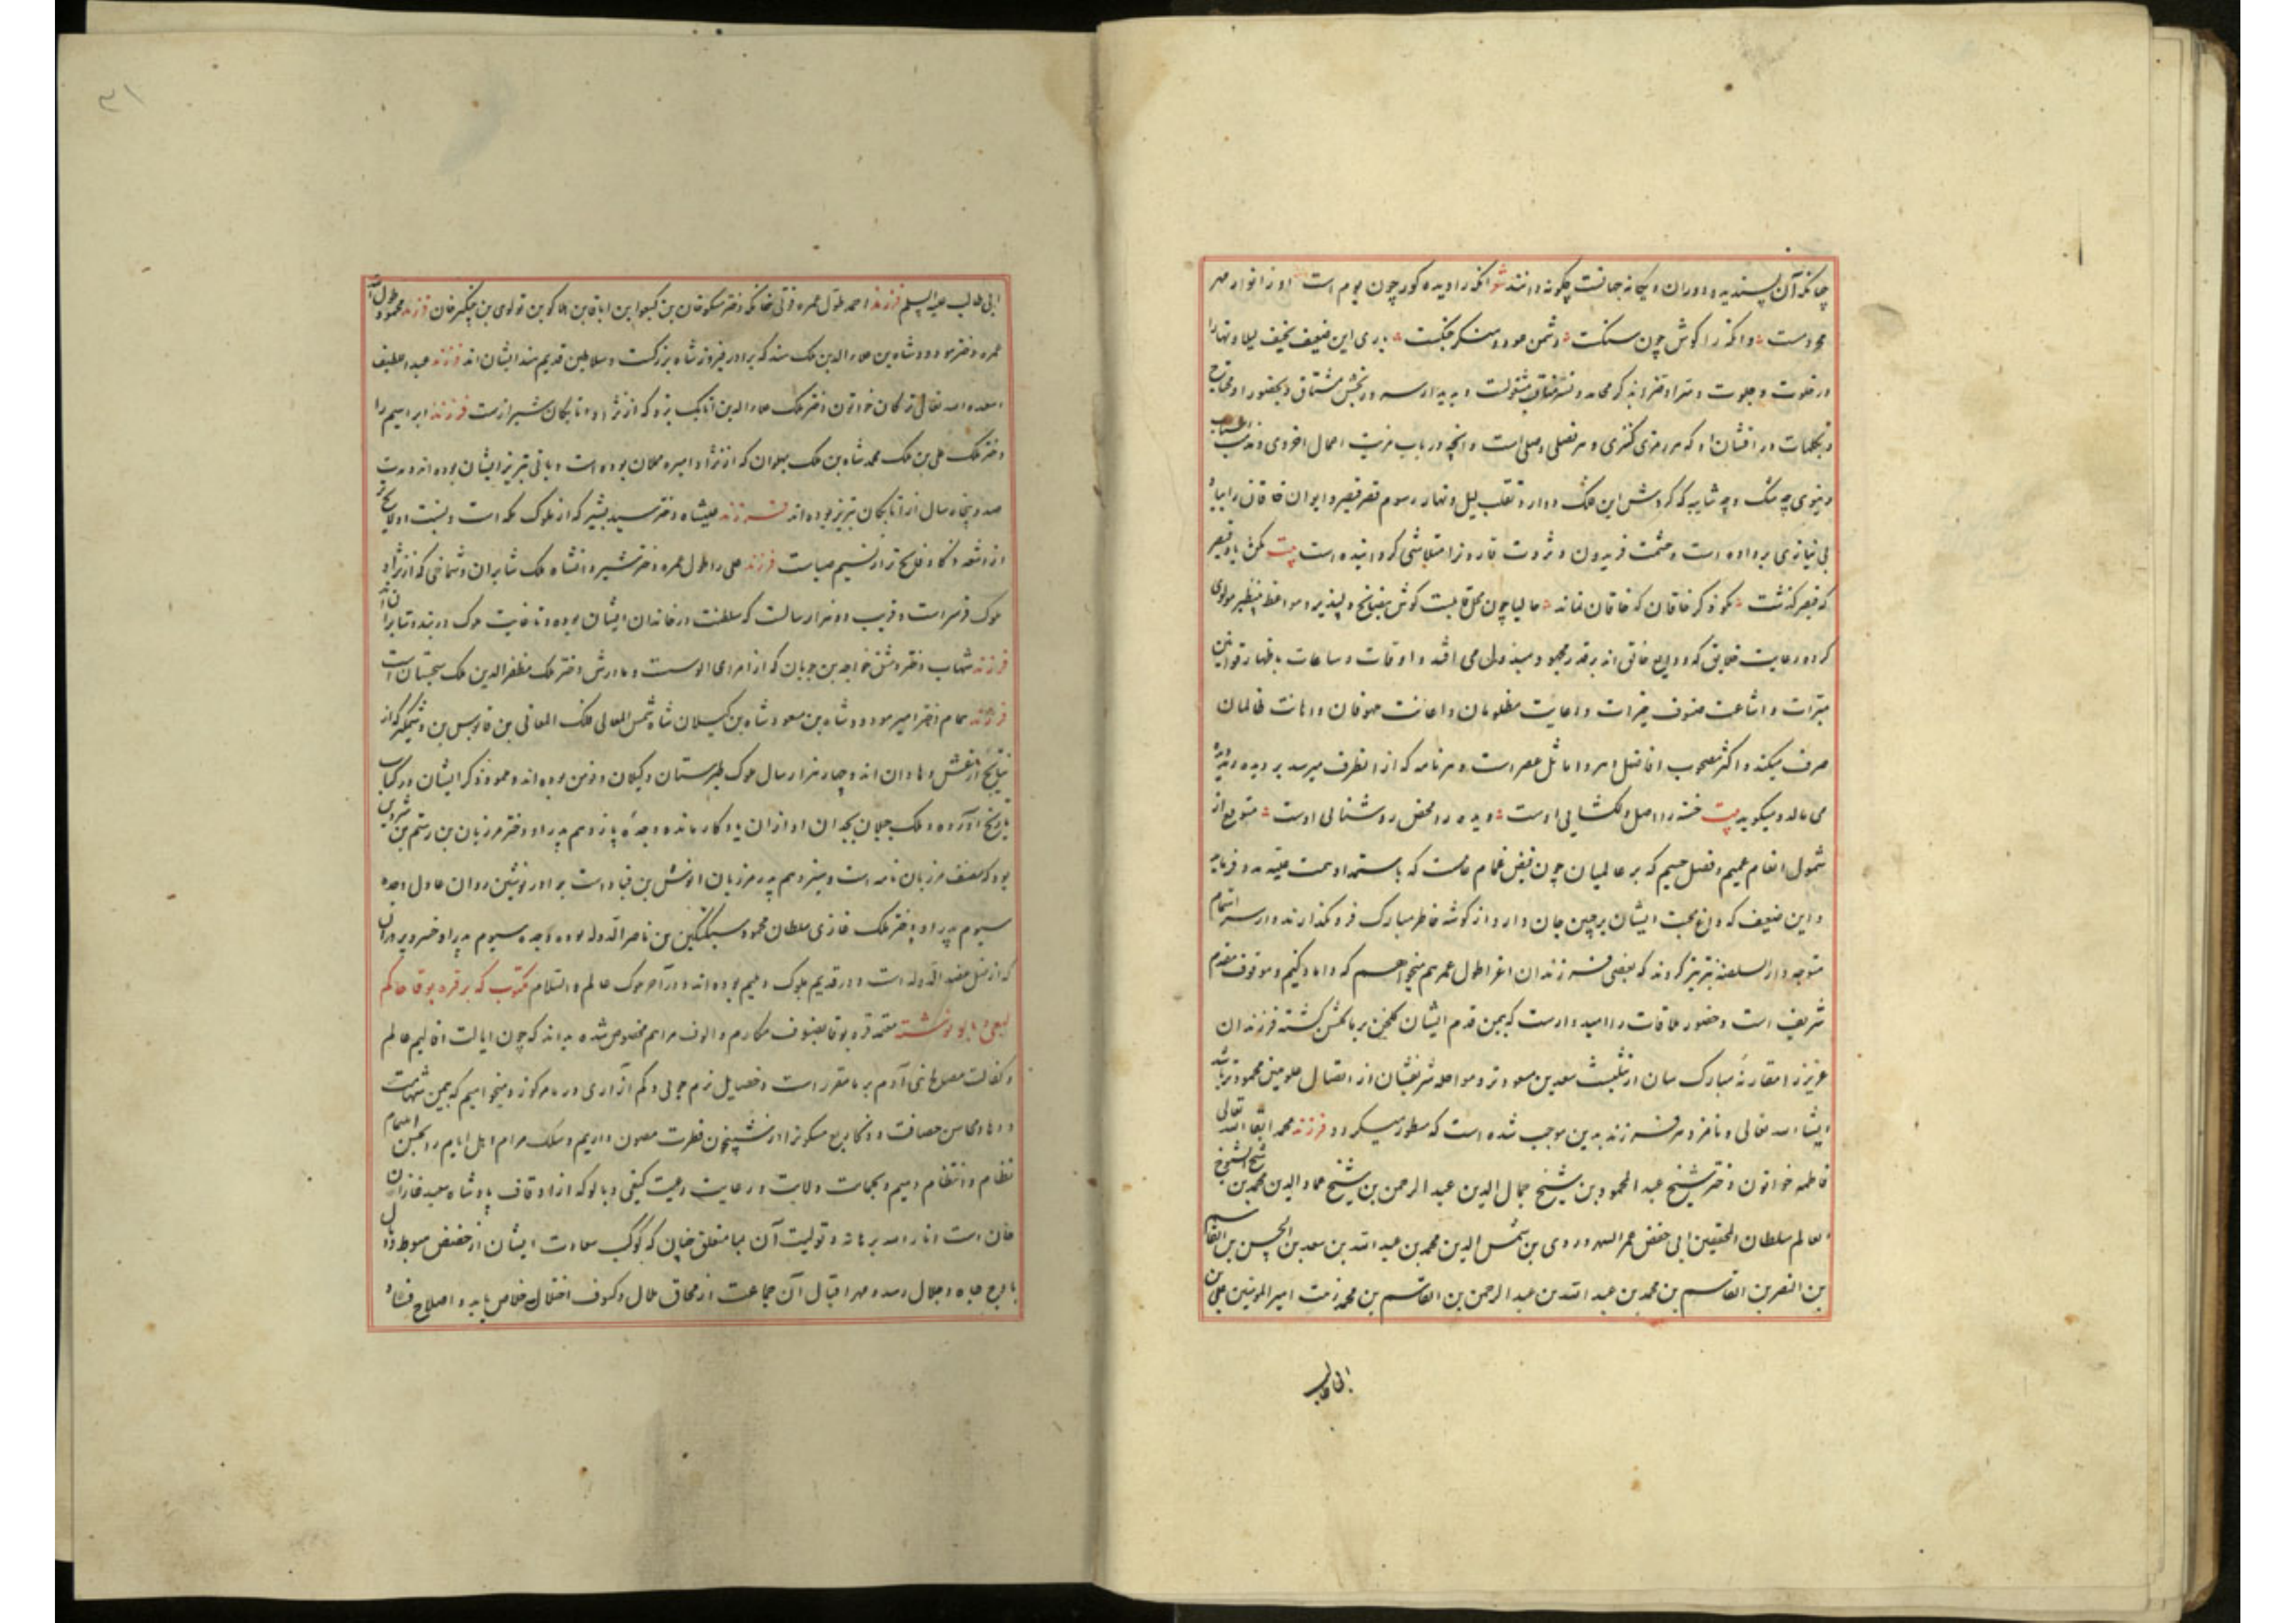 چنانکه آن پسندیده دوران و یگانه جهانست چگونه دانند شعر آنکه را دیده کور چون بوم است او ز انوار مهر
محرومست وانکه را گوش چون سنگست دشمن عود و منکر چنگست باری این ضعیف نحیف لیلا و نهارا
در خلوت و جلوت و سرا و ضرا بذکر محامد و نشر مشغولست و بدیدار مشتاق و بحضور او محتاج
و بکلمات در افشان او که هر رمزی کنزی و هر فصلی وصلی است و آنچه در باب مزیت اعمال اخروی و مذمت اسباب
دنیوی چه شک و چه شایبه که گردش این فلک دوار و تقلب لیل و نهار رسوم قصر قیصر و ایوان خاقان را بباد
بی نیازی برداده است و حشمت فریدون و ثروت قارون را متلاشی گردانیده است بیت مکن یاد قیصر
که قیصر گذشت مگو ذکر خاقان که خاقان نماند حالیا چون گوش بنصایح دلپذیر و مواعظ بی نظیر مولوی
کرده رعایت خلایق که ودایع خالق اند بقدر مجهود مبذول می افتد و اوقات و ساعات باظهار قوانین
مبرات و اشاعت صنوف خیرات و رعایت مظلومان و اعانت ملهوفان و اهانت ظالمان
صرف میکند و اکثر مصحوب افاضل دهر و اماثل عصر است و هر نامه که از انطرف میرسد بر دیده
می مالد و میگوید بیت خسته را اصل دلگشایی اوست دیده را محض روشنائی اوست متوقع از
شمول انعام عمیم و فضل جسیم که بر عالمیان چون فیض غمام عامست که باستمداد همت علیه مدد فرماید
و این ضعیف که داغ محبت ایشان بر جبین جان دارد از گوشه خاطر مبارک فرو نگذارند و از سر اهتمام
متوجه دارالسلطنه تبریز گردند که بعضی فرزندان اعز اطول عمرهم میخواهم که داماد کنیم و موقوف مقدم
شریف است و حضور ملاقات را امیدوارست که بیمن قدم ایشان گلخن بر ما گلشن گشته فرزندان
عزیز را مقارنهٔ مبارک سان از تثلیث سعدین مسعودتر و مواصله شریفشان از اتصال علومین محمودتر باشد
ایشا الله تعالی و نامزد هر فرزند بدین موجب شده است که مسطور میگردد فرزند محمد ابقاه الله تعالی
فاطمه خواتون دختر شیخ عبدالمحمود بن شیخ جمال الدین عبدالرحمن بن شیخ عماد الدین محمد بن شیخ الشیوخ
العالم سلطان المحققین ابی حفص عمر السهروردی بن شمس الدین محمد بن عبدالله بن سعد بن الحسن بن القاسم
بن النضر بن القاسم بن محمد بن عبدالله بن عبدالرحمن بن القاسم بن محمد زبت امیرالمومنین علی بن
ابی طالب
۳۱
ابی طالب علیه السلم فرزند احمد طول عمره دختر منکوخان بن کیخوا بن اباقا بن هلاکو بن تولوی بن چنکیز خان فرزند محمود طول الله
عمره دختر مودود شاه بن علاء الدین ملک هند که برادر فیروز شاه بزرگست و سلاطین قدیم هند ایشان اند فرزند عبداللطیف
اسعده الله تعالی ترکان خواتون دختر ملک علاء الدین اتابک یزد که از نژاد اتابکان شیراز است فرزند ابراهیم را
دختر ملک علی بن ملک محمد شاه بن ملک پهلوان که از نژاد امیره مملان بوده است و بانی تبریز ایشان بوده اند و مدت
صد و پنجاه سال از اتابکان تبریز بوده اند فرزند علیشاه دختر سید بشیر که از ملوک مکه است و نسبت او لایح تر
از اشعه ذکا و فایح تر از نسیم صباست فرزند علی را طول عمره دختر شیروانشاه ملک شابران و شماخی که از نژاد
ملوک فرس است و قریب دو هزار سالست که سلطنت در خاندان ایشان بوده و تا غایت ملوک دربند و شابران اند
فرزند شهاب دختر دمشق خواجه بن جوبان که از امرای الوسست و مادرش دختر ملک مظفرالدین ملک سجستان است
فرزند همام دختر امیر مودود شاه بن مسعود شاه بن کیلان شاه شمس المعالی فلک المعالی بن قابوس بن وشمگیر که از
نتایج ارغش و هادان اند و چهار هزار سال ملوک طبرستان و گیلان و زمین بوده اند و نمود ذکر ایشان در کتاب
تاریخ آورده و ملک جیلان بجدان او از ان یادگار مانده و جدهٔ یازدهم پدر او دختر مرزبان بن رستم بن شروین
بود که مصنف مرزبان نامه است و سیزدهم پدر مرزبان انوش بن قباد است برادر نوشین روان عادل و جده
سیوم پدر او دختر ملک غازی سلطان محمود سبکتکین بن ناصرالدوله بوده و جده سیوم پدر او خسرو پیروزان
که از نسل عضد الدوله است و در قدیم ملوک دیلم بوده اند و در آخر ملوک عالم والسلام مکتوب که بر قره بوقا حاکم
کیفی و بابو نوشته معتمد قره بوقا بصنوف مکارم و الوف مراحم مخصوص شده بداند که چون ایالت اقالیم عالم
و کفالت مصالح بنی آدم بر ما مقرر است و خصایل نرم جویی و کم آزاری در ما مرکوز و میخواهیم که بیمن شهامت
و دها و محاسن حصافت و ذکا ربع مسکون را از شبیخون فطرت مصون داریم و سلک مرام اهل ایام را بحسن اهتمام
نظام و انتظام دهیم و بجهات ولایت و رعایت رعیت کیفی و بالو که از اوقاف پادشاه سعید غازان
خان است انار الله برهانه و تولیت آن بما متعلق چنان که کوکب سعادت ایشان از حضیض هبوط وبال
باوج جاه و جلال رسد و مهر اقبال آن جماعت از محاق ملال و کسوف اختلال خلاص یابد و اصلاح فساد